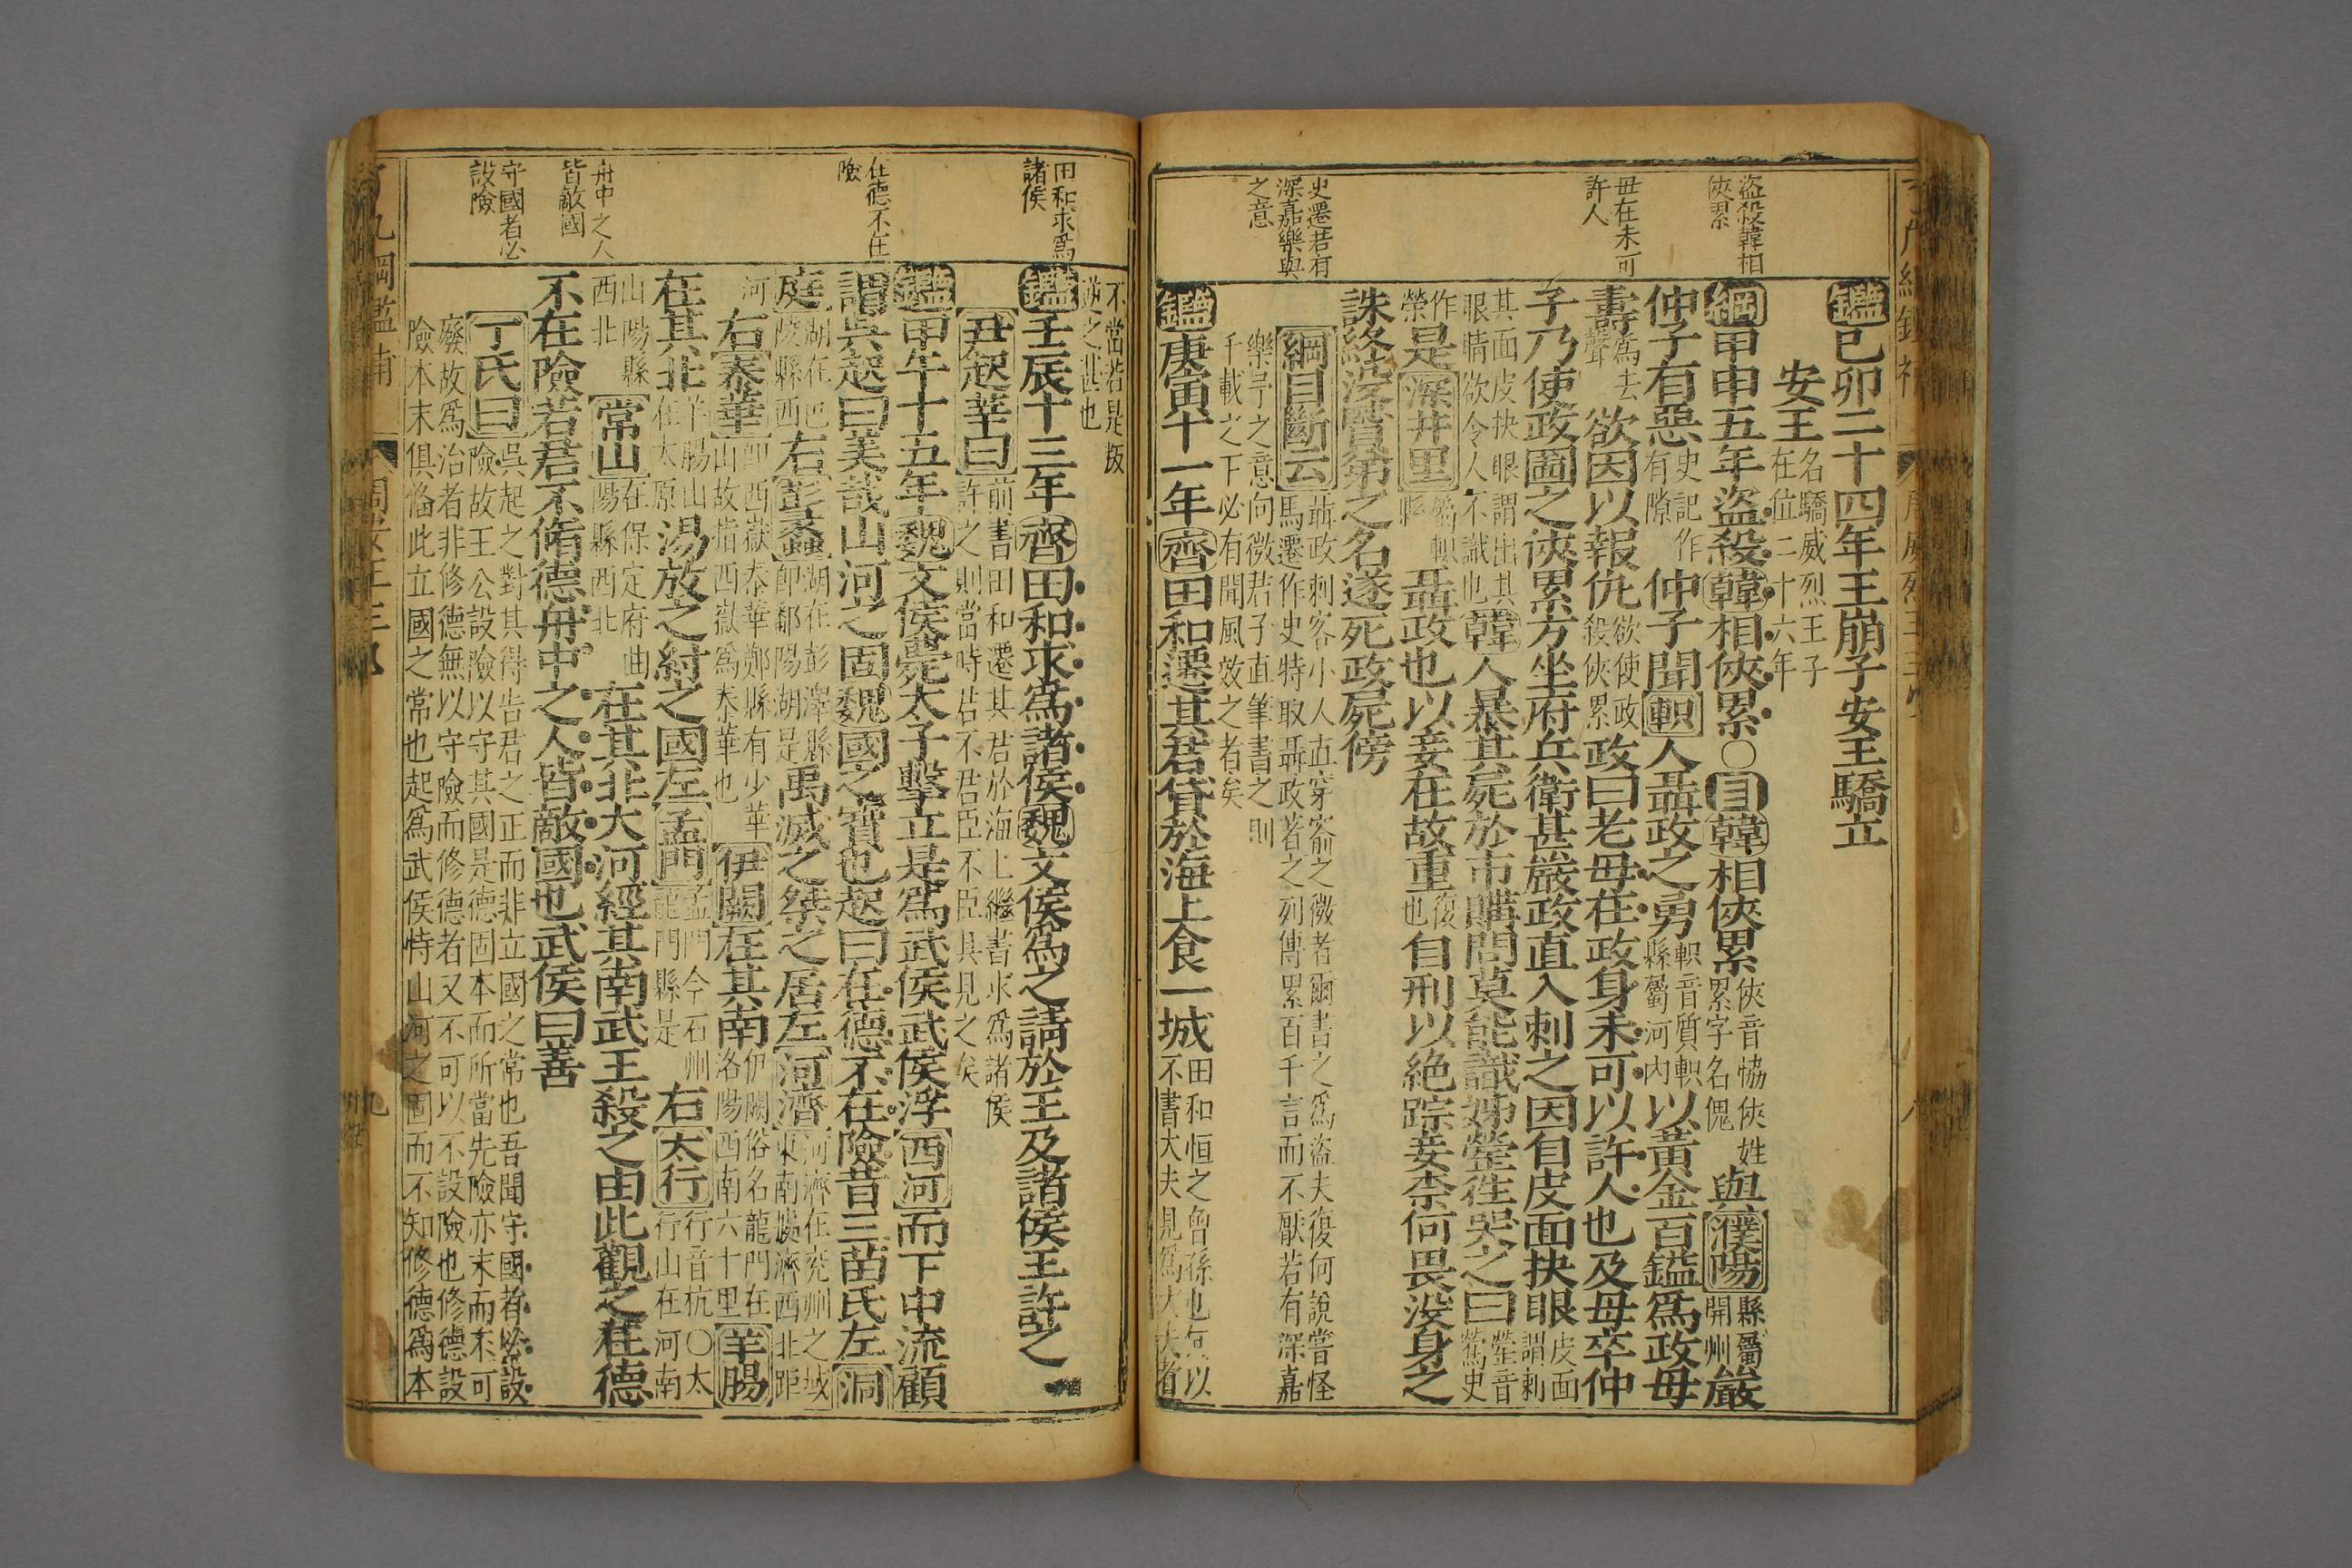 盜殺韓相
俠累
毋在未可
許人
史遷若有
深嘉樂與
之意
鑑己卯二十四年王崩子安王驕立
安王名驕威烈王子在位二十六年
綱甲申五年盜殺韓相俠累○目韓相俠累俠音恊俠姓累字名傀與濮陽縣屬開州嚴
仲子有惡史記作有隙仲子聞軹人聶政之勇軹音質軹縣屬河内以黃金百鎰爲政母
壽爲去聲欲因以報仇欲使政殺俠累政曰老母在政身未可以許人也及母卒仲
子乃使政圖之俠累方坐府兵衛甚嚴政直入刺之因自皮面抉眼皮面謂剌
其面皮抉眼謂出其眼睛欲令人不識也韓人暴其屍於市購問莫能識姊嫈徃哭之曰嫈音鶯史
作榮是深井里屬軹縣聶政也以妾在故重復也自刑以絶踪妾柰何畏没身之
誅終没賢弟之名遂死政屍傍
綱目斷云聶政刺客小人直穿窬之微者爾書之爲盜夫復何說嘗怪馬遷作史特取聶政著之列傳累百千言而不厭若有深嘉
樂予之意向微君子直筆書之則千載之下必有聞風效之者矣
鑑庚寅十一年齊田和遷其君貸於海上食一城田和恒之曾孫也何以不書大夫見爲大夫者
田和求爲
諸侯
在德不在
險
舟中之人
皆敵國
守國者必
設險
不當若是叛逆之甚也
鑑壬辰十三年齊田和求爲諸侯魏文侯爲之請於王及諸侯王許之
尹起莘曰前書田和遷其君於海上繼書求爲諸侯許之則當時君不君臣不臣具見之矣
鑑甲午十五年魏文侯薨太子擊立是爲武侯武侯浮西河而下中流顧
謂吳起曰美哉山河之固魏國之寶也起曰在德不在險昔三苗氏左洞
庭湖在巴陵縣西右彭蠡湖在彭澤縣即鄱陽湖是禹滅之桀之居左河濟河濟在兖州之域東南據濟西北距
河右泰華即西嶽泰華鄭縣有少華山故指西嶽爲泰華也伊闕在其南伊闕俗名龍門在洛陽西南六十里羊腸
在其北羊腸山在太原湯放之紂之國左孟門孟門今石州龍門縣是右太行行音杭○太行山在河南
山陽縣西北常山在保定府曲陽縣西北在其北大河經其南武王殺之由此觀之在德
不在險若君不脩德舟中之人皆敵國也武侯曰善
丁氏曰吳起之對其得告君之正而非立國之常也吾聞守國者必設險故王公設險以守其國是德固本而所當先險亦末而不可
廢故爲治者非修德無以守險而修德者又不可以不設險也修德設險本末俱備此立國之常也起爲武侯恃山河之固而不知修德爲本